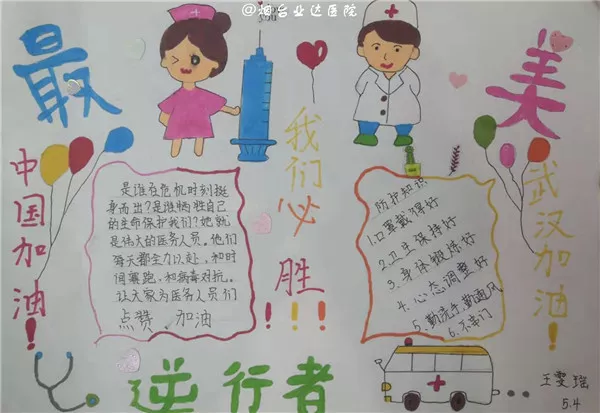 @烟台业达医院
you
最美
中国加油!
我们必胜!!!
武汉加油!
是谁在危机时刻挺
身而出?是谁牺牲自己
的生命保护我们?她就
是伟大的医务人员。他们
每天都全力以赴,和时
间赛跑,和病毒对抗。
让大家为医务人员们
点赞、加油
防护知识
1.口罩戴得好
2.卫生保持好
3.身体锻炼好
4.心态调整好
5.勤洗手勤通风
6.不串门
逆行者...
王雯瑶
5.4